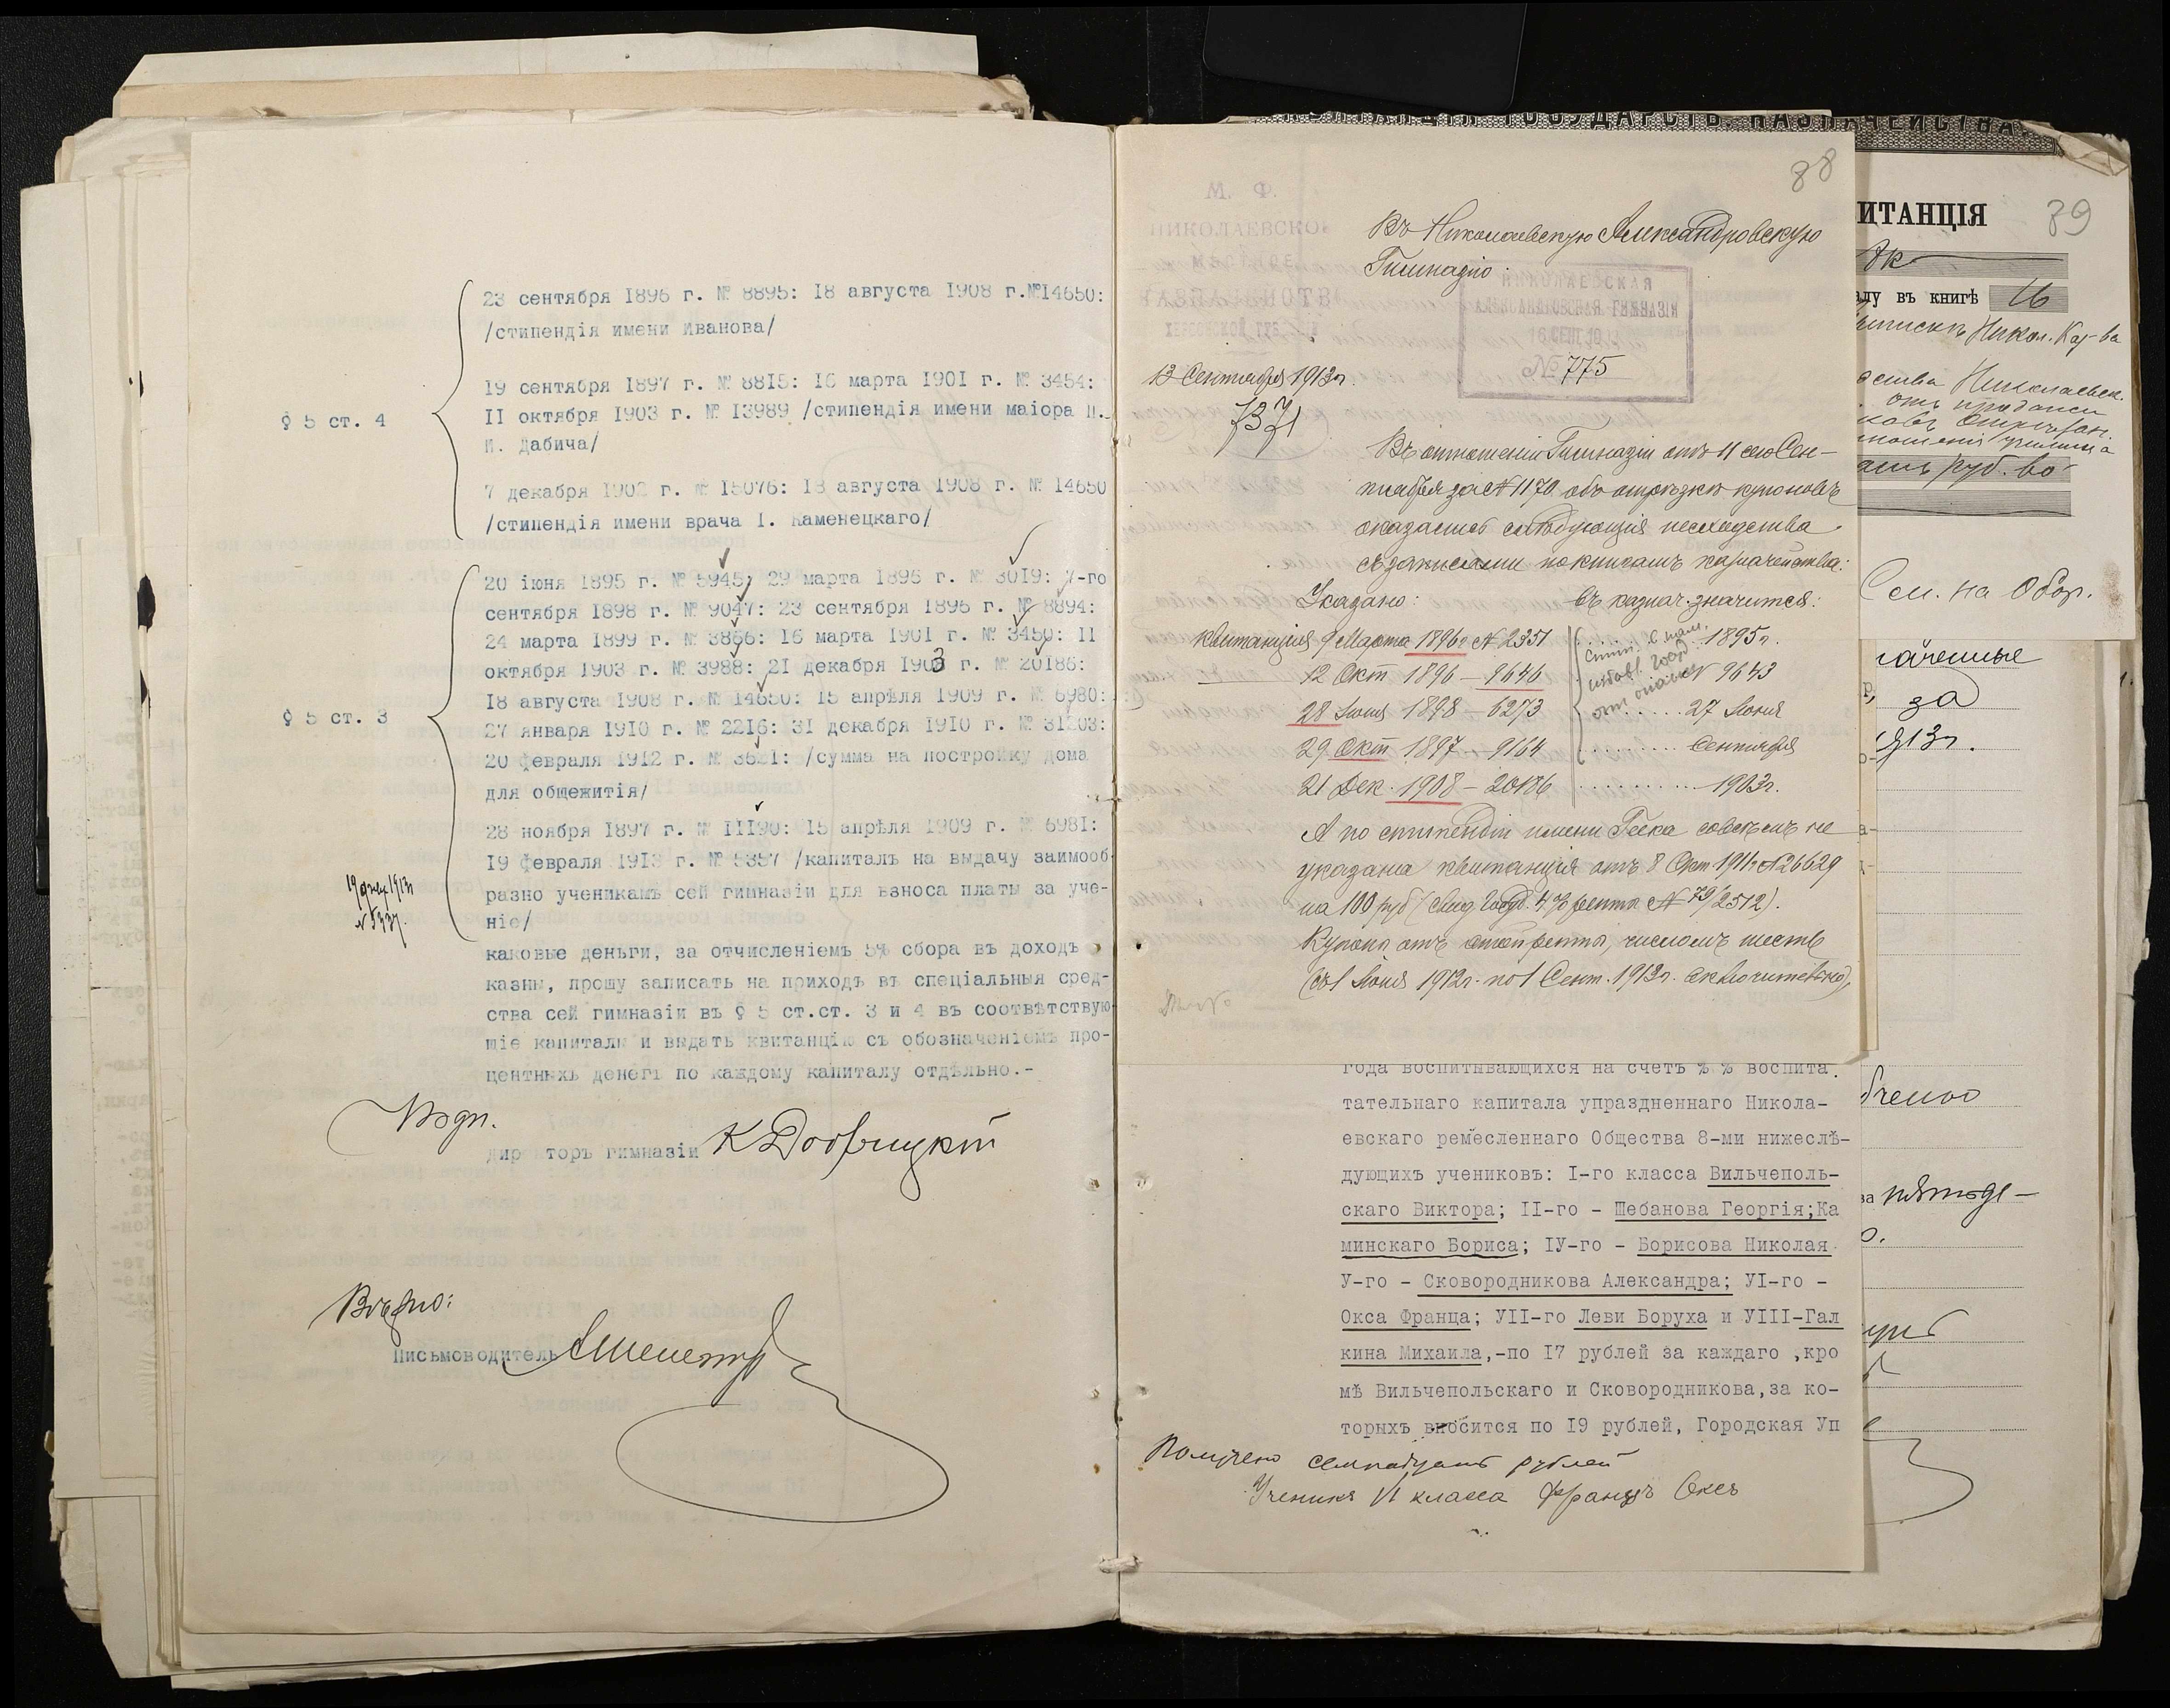 23 сентября 1896 г. № 8895: 18 августа 1908 г.№14650:
/стипендія имени Иванова/
19 сентября 1897 г. № 8815: 16 марта 1901 г. № 3454:
§ 5 ст. 4
11 октября 1903 г. № 13989 /стипендія имени маіора П.
И. Дабича/
7 декабря 1902 г. № 15076: 18 августа 1908 г. № 14650
/стипендія имени врача І. Каменецкаго/
20 іюня 1895 г. № 5945; 29 марта 1896 г. № 3019: 7-го
сентября 1898 г. № 9047: 23 сентября 1896 г. № 8894:
24 марта 1899 г. № 3866: 16 марта 1901 г. № 3450: 11
октября 1903 г. № 3988: 21 декабря 1903 г. № 20186:
18 августа 1908 г. № 14650: 15 апрѣля 1909 г. № 6980:
§ 5 ст. 3
27 января 1910 г. № 2216: 31 декабря 1910 г. № 31203:
20 февраля 1912 г. № 3621: /сумма на постройку дома
для общежитія/
28 ноября 1897 г. № 11190: 15 апрѣля 1909 г. № 6981:
19 февраля 1913 г. № 5357 /капиталъ на выдачу заимооб
разно ученикамъ сей гимназіи для взноса платы за уче-
ніе/
каковые деньги, за отчисленіемъ 5% сбора въ доходъ
казны, прошу записать на приходъ въ спеціальныя сред-
ства сей гимназіи въ § 5 ст.ст. 3 и 4 въ соотвѣтствую
щіе капиталы и выдать квитанцію съ обозначеніемъ про-
центныхъ денегъ по каждому капиталу отдѣльно.-
Подп.
Директоръ гимназіи
Вѣрно:
Письмоводитель
88
Въ Николаевскую Александровскую
Гимназію.
НИКОЛАЕВСКАЯ
АЛЕКСАНДРОВСКАЯ ГИМНАЗІЯ
№ 775
М. Ф.
НИКОЛАЕВСКОЕ
13 Сентября 1913 г.
7371
Въ отношеніи Гимназіи отъ 11 сего Сен-
тября за № 1170 объ отрѣзкѣ купоновъ
оказались слѣдующія несходства
съ записями по книгамъ казначейства:
Указано: Въ казнач. значится:
Квитанція 9 Марта 1896 г. № 2351 1895 г.
12 Окт 1896 — 9646 № 9643
28 Іюня 1898 — 6273 27 Іюня
29 Окт 1897 — 9164 Сентября
21 Дек. 1908 — 20186 1903 г.
А по стипендіи имени Геека совсѣмъ не
указана квитанція отъ 8 Окт 1911 г. № 26629
на 100 руб (свид. Госуд. 4% рента № 79/2512).
Купоны отъ этой ренты, числомъ шесть
(съ 1 Іюня 1912 г. по 1 Сент. 1913 г. включительно),
года воспитывающихся на счетъ % % воспита.
тательнаго капитала упраздненнаго Никола-
евскаго ремесленнаго Общества 8-ми нижеслѣ-
дующихъ учениковъ: I-го класса Вильчеполь-
скаго Виктора; II-го - Шебанова Георгія;Ка
минскаго Бориса; IУ-го - Борисова Николая
У-го - Сковородникова Александра; УI-го -
Окса Франца; УII-го Леви Боруха и УIII-Гал
кина Михаила,-по 17 рублей за каждаго ,кро
мѣ Вильчепольскаго и Сковородникова,за ко-
торыхъ вносится по 19 рублей, Городская Уп
Получено семнадцать рублей
Ученикъ VI класса Францъ Оксъ
КВИТАНЦІЯ ГОСУДАРСТВ. КАЗНАЧЕЙСТВА
ИТАНЦІЯ
39
алу въ книгѣ 16
См. на обор.
за
1913 г.